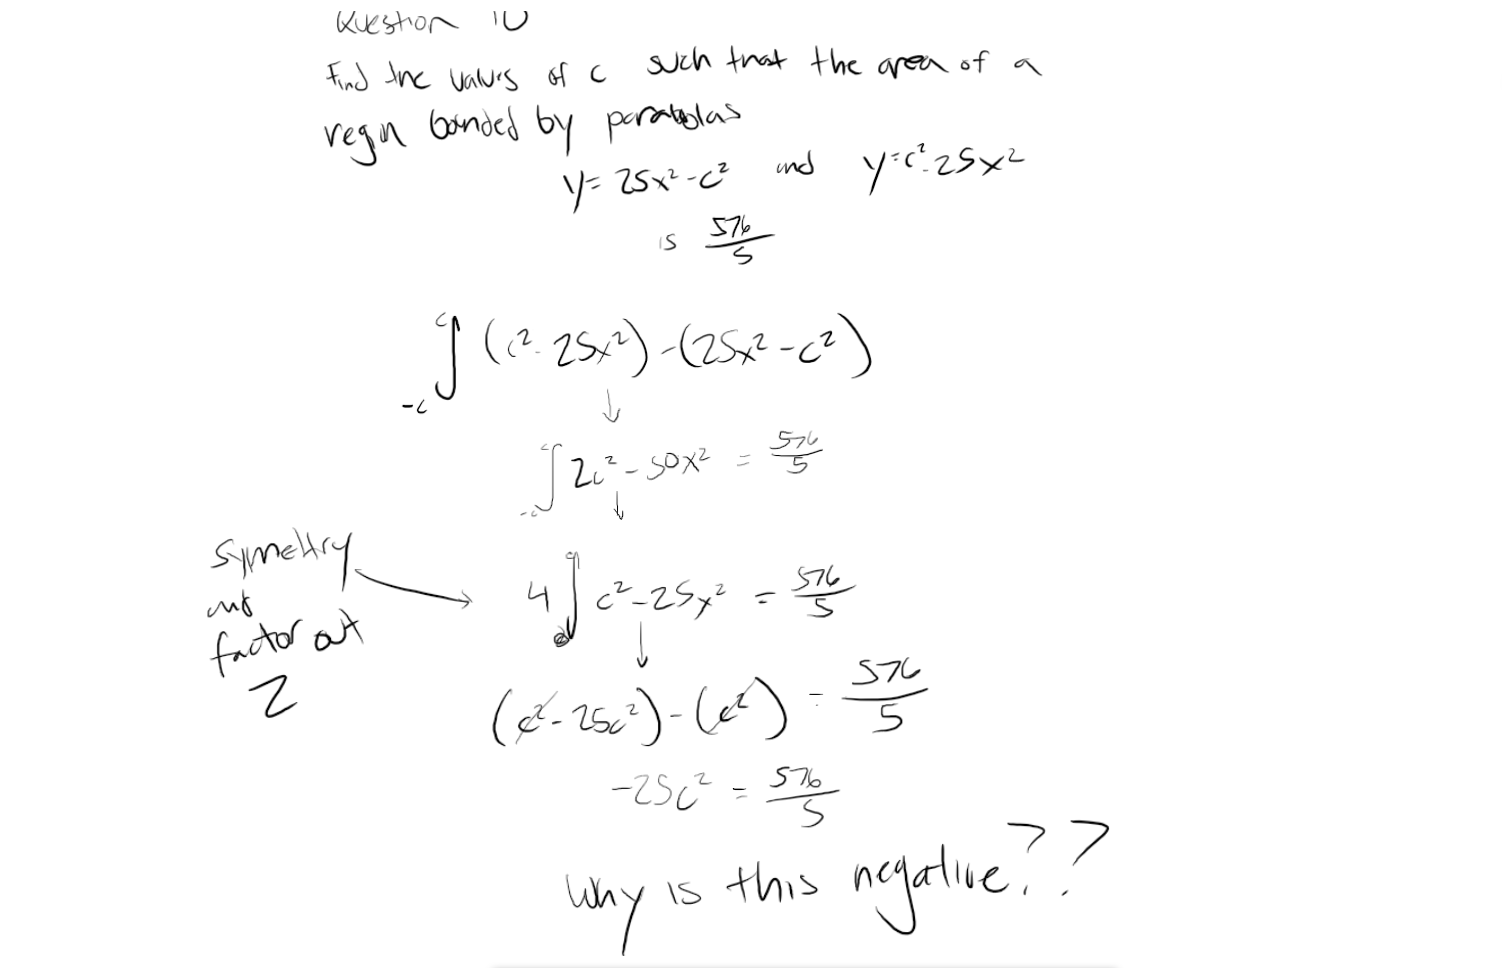 Question 10
Find the values of c such that the area of a
region bounded by parabolas
y= 25x²-c² and y=c²-25x²
is 576/5
∫_{-c}^{c} (c²-25x²)-(25x²-c²)
↓
∫_{-c}^{c} 2c²-50x² = 576/5
↓
symmetry
and
factor out
2
4 ∫_{0}^{c} c²-25x² = 576/5
↓
(c²-25c²)-(c²) = 576/5
-25c² = 576/5
Why is this negative??